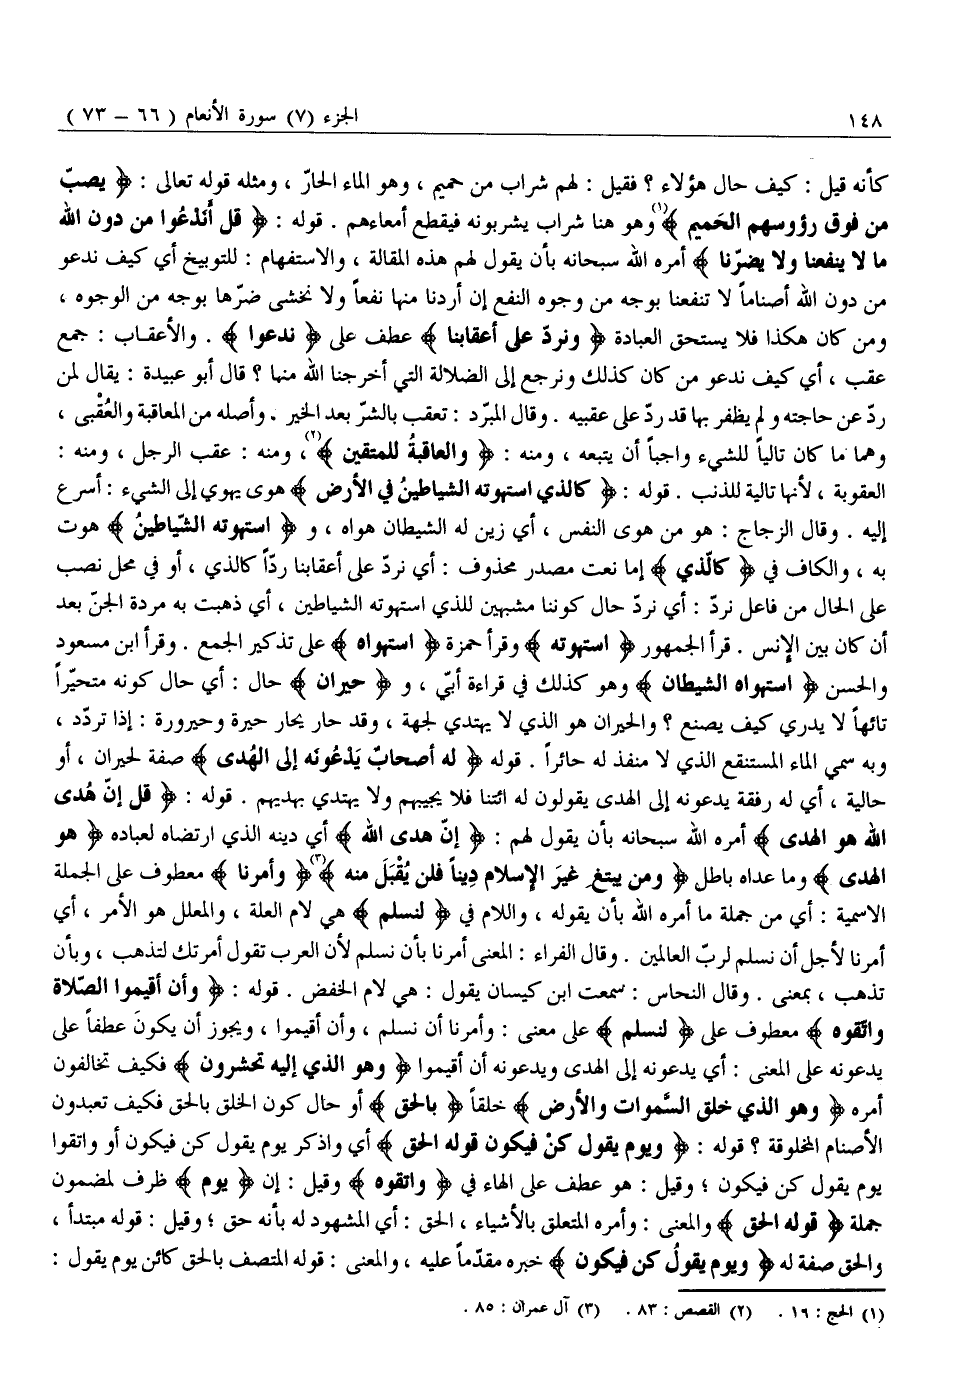 ١٤٨ الجزء (٧) سورة الأنعام ( ٦٦ – ٧٣ )
كأنه قيل : كيف حال هؤلاء ؟ فقيل : لهم شراب من حميم ، وهو الماء الحارّ ، ومثله قوله تعالى : ﴿ يصبّ
من فوق رؤوسهم الحَميم ﴾(١) وهو هنا شراب يشربونه فيقطع أمعاءهم . قوله : ﴿ قل أَنَدْعُوا من دون الله
ما لا ينفعنا ولا يضرّنا ﴾ أمره الله سبحانه بأن يقول لهم هذه المقالة ، والاستفهام : للتوبيخ أي كيف ندعو
من دون الله أصناماً لا تنفعنا بوجه من وجوه النفع إن أردنا منها نفعاً ولا نخشى ضرّها بوجه من الوجوه ،
ومن كان هكذا فلا يستحق العبادة ﴿ ونردّ على أعقابنا ﴾ عطف على ﴿ ندعوا ﴾ . والأعقاب : جمع
عقب ، أي كيف ندعو من كان كذلك ونرجع إلى الضلالة التي أخرجنا الله منها ؟ قال أبو عبيدة : يقال لمن
ردّ عن حاجته و لم يظفر بها قد ردّ على عقبيه . وقال المبرّد : تعقب بالشرّ بعد الخير . وأصله من المعاقبة والعُقْبى ،
وهما ما كان تالياً للشيء واجباً أن يتبعه ، ومنه : ﴿ والعاقبةُ للمتقين ﴾(٢) ، ومنه : عقب الرجل ، ومنه :
العقوبة ، لأنها تالية للذنب . قوله : ﴿ كالذي استهوته الشياطينُ في الأرض ﴾ هوى يهوي إلى الشيء : أسرع
إليه . وقال الزجاج : هو من هوى النفس ، أي زين له الشيطان هواه ، و ﴿ استهوته الشّياطينُ ﴾ هوت
به ، والكاف في ﴿ كالّذي ﴾ إما نعت مصدر محذوف : أي نردّ على أعقابنا ردّاً كالذي ، أو في محل نصب
على الحال من فاعل نردّ : أي نردّ حال كوننا مشبهين للذي استهوته الشياطين ، أي ذهبت به مردة الجنّ بعد
أن كان بين الإنس . قرأ الجمهور ﴿ استهوته ﴾ وقرأ حمزة ﴿ استهواه ﴾ على تذكير الجمع . وقرأ ابن مسعود
والحسن ﴿ استهواه الشيطان ﴾ وهو كذلك في قراءة أبيّ ، و ﴿ حيران ﴾ حال : أي حال كونه متحيّراً
تائهاً لا يدري كيف يصنع ؟ والحيران هو الذي لا يهتدي لجهة ، وقد حار يحار حيرة وحيرورة : إذا تردّد ،
وبه سمي الماء المستنقع الذي لا منفذ له حائراً . قوله ﴿ له أصحابٌ يَدْعُونَه إلى الهُدى ﴾ صفة لحيران ، أو
حالية ، أي له رفقة يدعونه إلى الهدى يقولون له ائتنا فلا يجيبهم ولا يهتدي بهديهم . قوله : ﴿ قل إنّ هُدى
الله هو الهدى ﴾ أمره الله سبحانه بأن يقول لهم : ﴿ إنّ هدى الله ﴾ أي دينه الذي ارتضاه لعباده ﴿ هو
الهدى ﴾ وما عداه باطل ﴿ ومن يبتغ غيرَ الإسلام دِيناً فلن يُقْبَلَ منه ﴾(٣) ﴿ وأمرنا ﴾ معطوف على الجملة
الاسمية : أي من جملة ما أمره الله بأن يقوله ، واللام في ﴿ لنسلم ﴾ هي لام العلة ، والمعلل هو الأمر ، أي
أمرنا لأجل أن نسلم لربّ العالمين . وقال الفراء : المعنى أمرنا بأن نسلم لأن العرب تقول أمرتك لتذهب ، وبأن
تذهب ، بمعنى . وقال النحاس : سمعت ابن كيسان يقول : هي لام الخفض . قوله : ﴿ وأن أقيموا الصّلاة
واتّقوه ﴾ معطوف على ﴿ لنسلم ﴾ على معنى : وأمرنا أن نسلم ، وأن أقيموا ، ويجوز أن يكونَ عطفاً على
يدعونه على المعنى : أي يدعونه إلى الهدى ويدعونه أن أقيموا ﴿ وهو الذي إليه تحشرون ﴾ فكيف تخالفون
أمره ﴿ وهو الذي خلق السَّموات والأرض ﴾ خلقاً ﴿ بالحق ﴾ أو حال كون الخلق بالحق فكيف تعبدون
الأصنام المخلوقة ؟ قوله : ﴿ ويوم يقول كنْ فيكون قوله الحق ﴾ أي واذكر يوم يقول كن فيكون أو واتقوا
يوم يقول كن فيكون ؛ وقيل : هو عطف على الهاء في ﴿ واتقوه ﴾ وقيل : إن ﴿ يوم ﴾ ظرف لمضمون
جملة ﴿ قوله الحق ﴾ والمعنى : وأمره المتعلق بالأشياء ، الحق : أي المشهود له بأنه حق ؛ وقيل : قوله مبتدأ ،
والحق صفة له ﴿ ويوم يقولُ كن فيكون ﴾ خبره مقدّماً عليه ، والمعنى : قوله المتصف بالحق كائن يوم يقول :
(١) الحج : ١٦ . (٢) القصص : ٨٣ . (٣) آل عمران : ٨٥ .